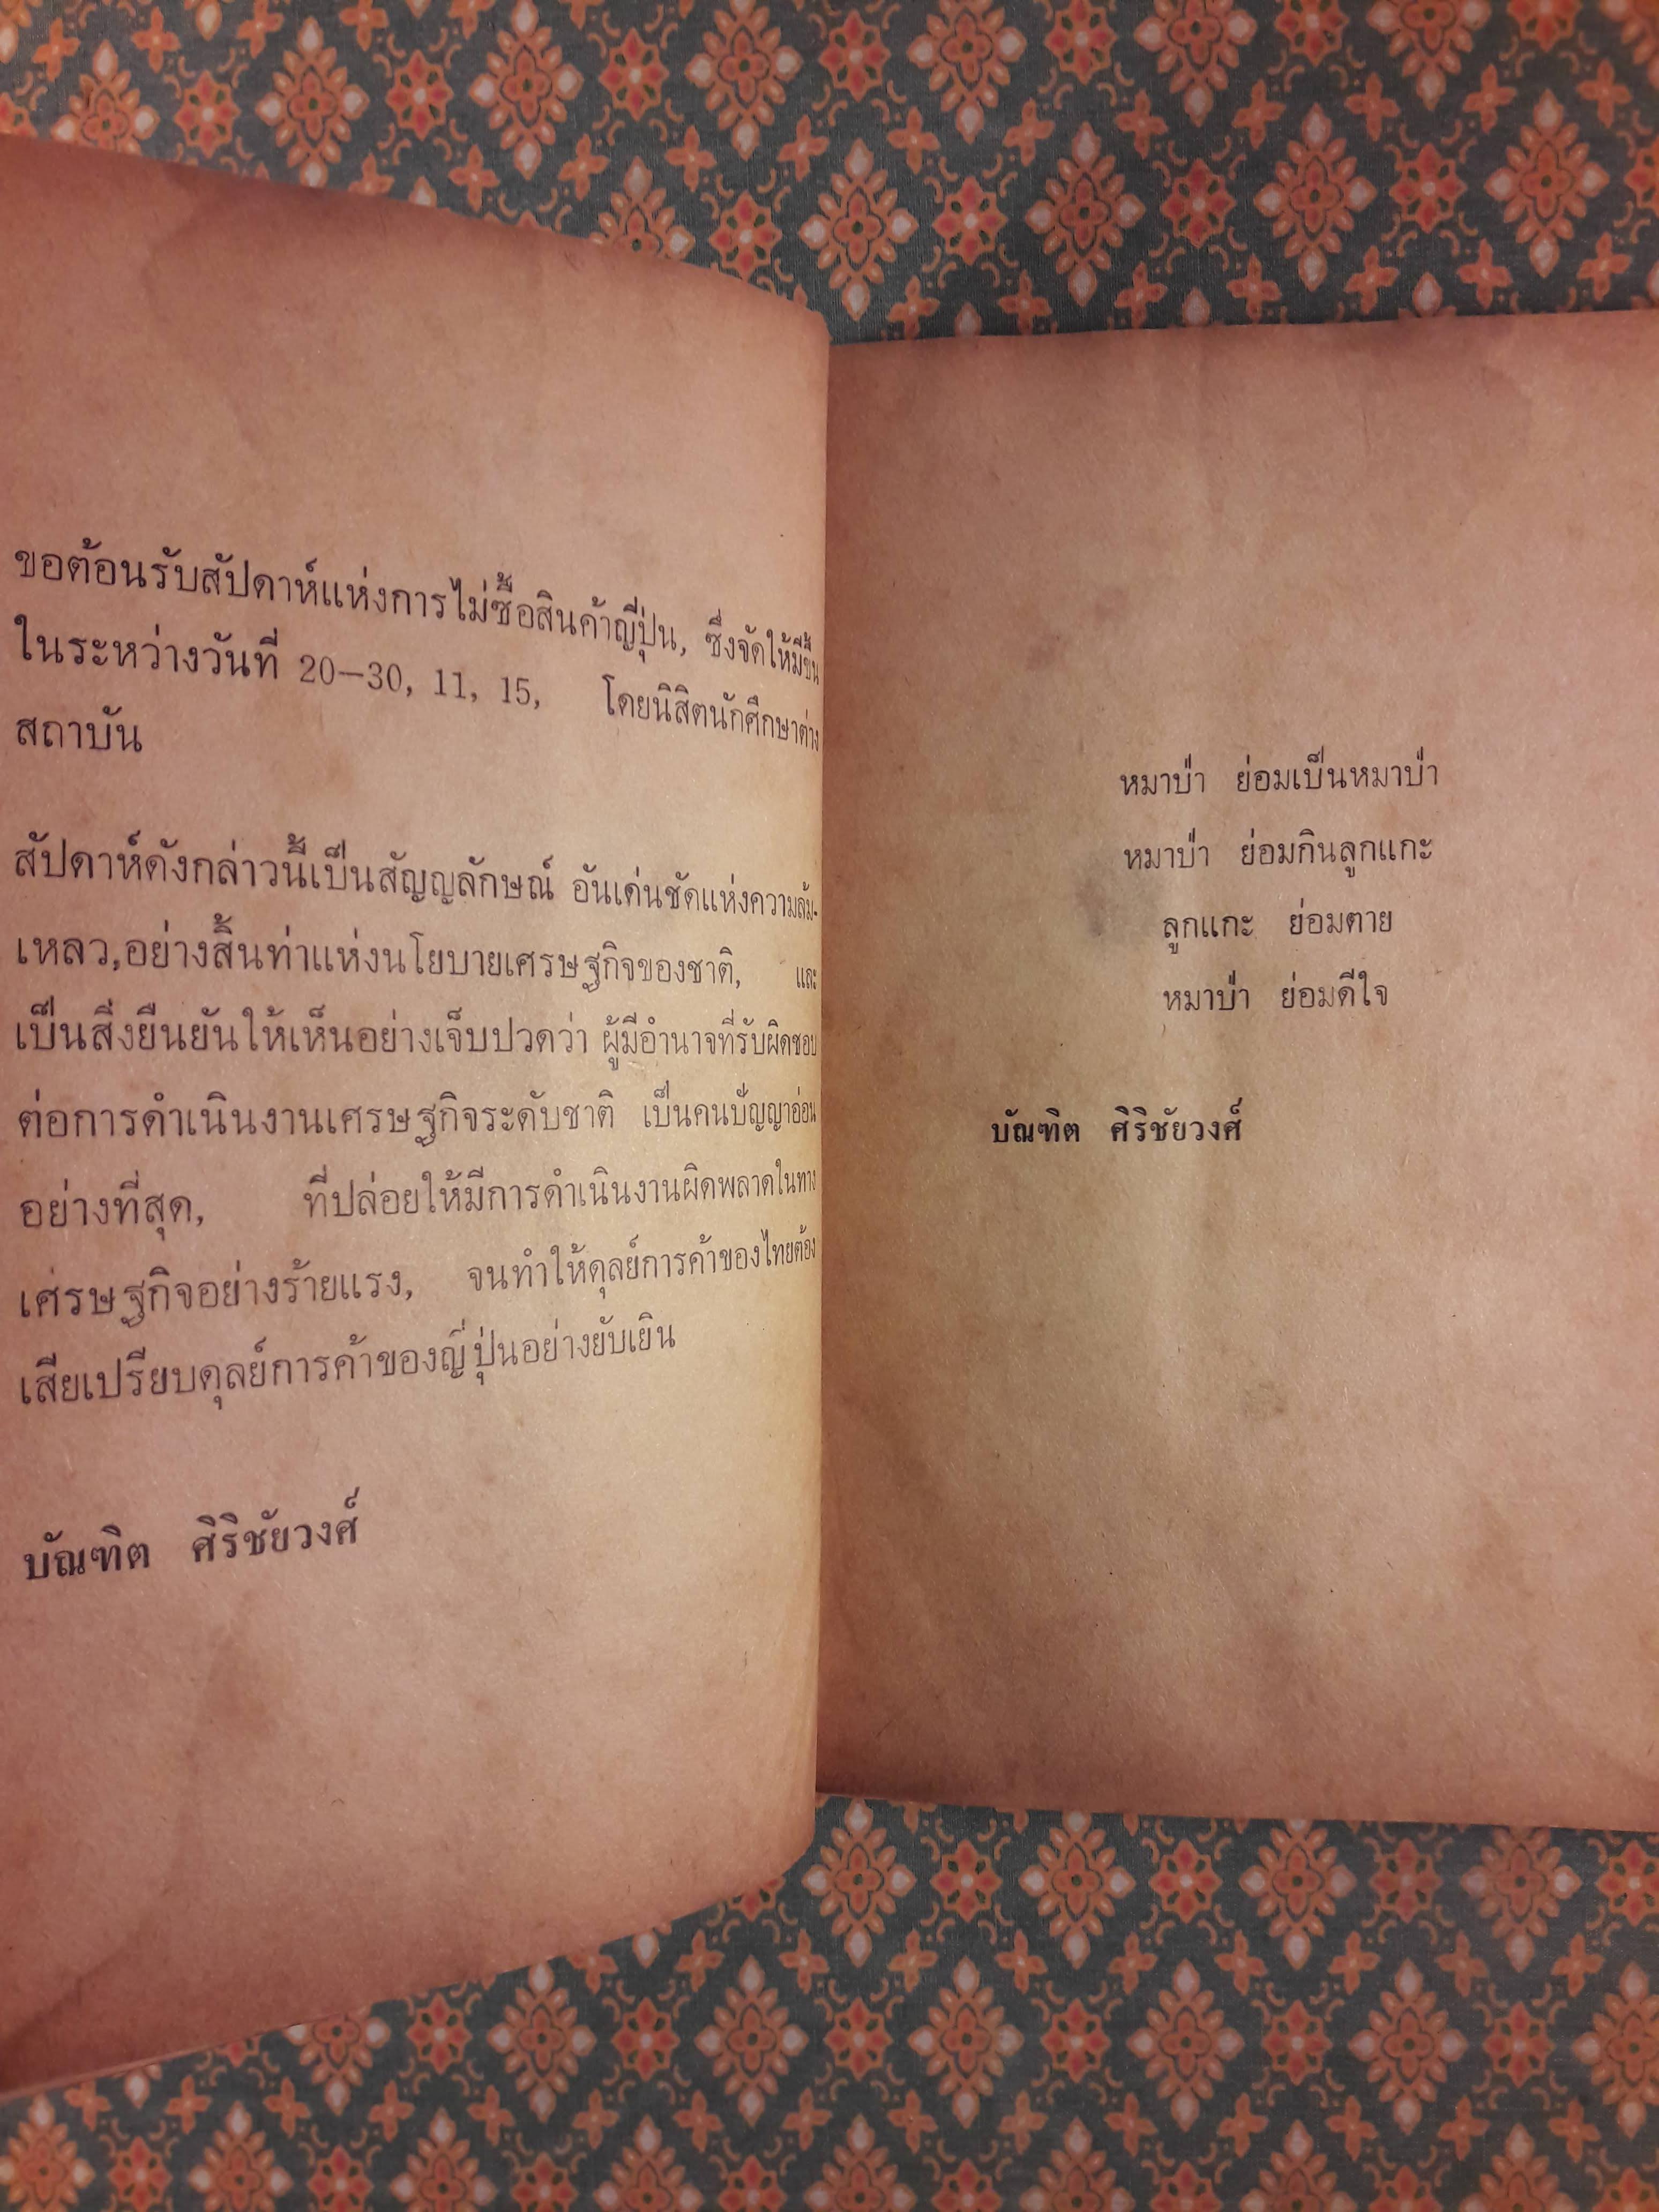 ขอต้อนรับสัปดาห์แห่งการไม่ซื้อสินค้าญี่ปุ่น, ซึ่งจัดให้มีขึ้น
ในระหว่างวันที่ 20—30, 11, 15, โดยนิสิตนักศึกษาต่าง
สถาบัน
สัปดาห์ดังกล่าวนี้เป็นสัญญลักษณ์ อันเด่นชัดแห่งความล้ม-
เหลว,อย่างสิ้นท่าแห่งนโยบายเศรษฐกิจของชาติ, และ
เป็นสิ่งยืนยันให้เห็นอย่างเจ็บปวดว่า ผู้มีอำนาจที่รับผิดชอบ
ต่อการดำเนินงานเศรษฐกิจระดับชาติ เป็นคนปัญญาอ่อน
อย่างที่สุด, ที่ปล่อยให้มีการดำเนินงานผิดพลาดในทาง
เศรษฐกิจอย่างร้ายแรง, จนทำให้ดุลย์การค้าของไทยต้อง
เสียเปรียบดุลย์การค้าของญี่ปุ่นอย่างยับเยิน
บัณฑิต ศิริชัยวงศ์
หมาป่า ย่อมเป็นหมาป่า
หมาป่า ย่อมกินลูกแกะ
ลูกแกะ ย่อมตาย
หมาป่า ย่อมดีใจ
บัณฑิต ศิริชัยวงศ์